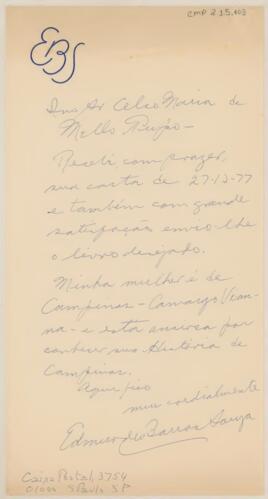 CMP 2.1.5.403
EBS
Ilmo Sr Celso Maria de
Mello Pupo -
Recebi com prazer,
sua carta de 27-12-77
e também com grande
satisfação envio-lhe
o livro desejado.
Minha mulher é de
Campinas - Camargo Vian-
na - e está ansiosa por
conhecer sua História de
Campinas.
Aqui fico
mui cordialmente
Edmundo Barros Souza
Caixa Postal, 3754
S Paulo SP